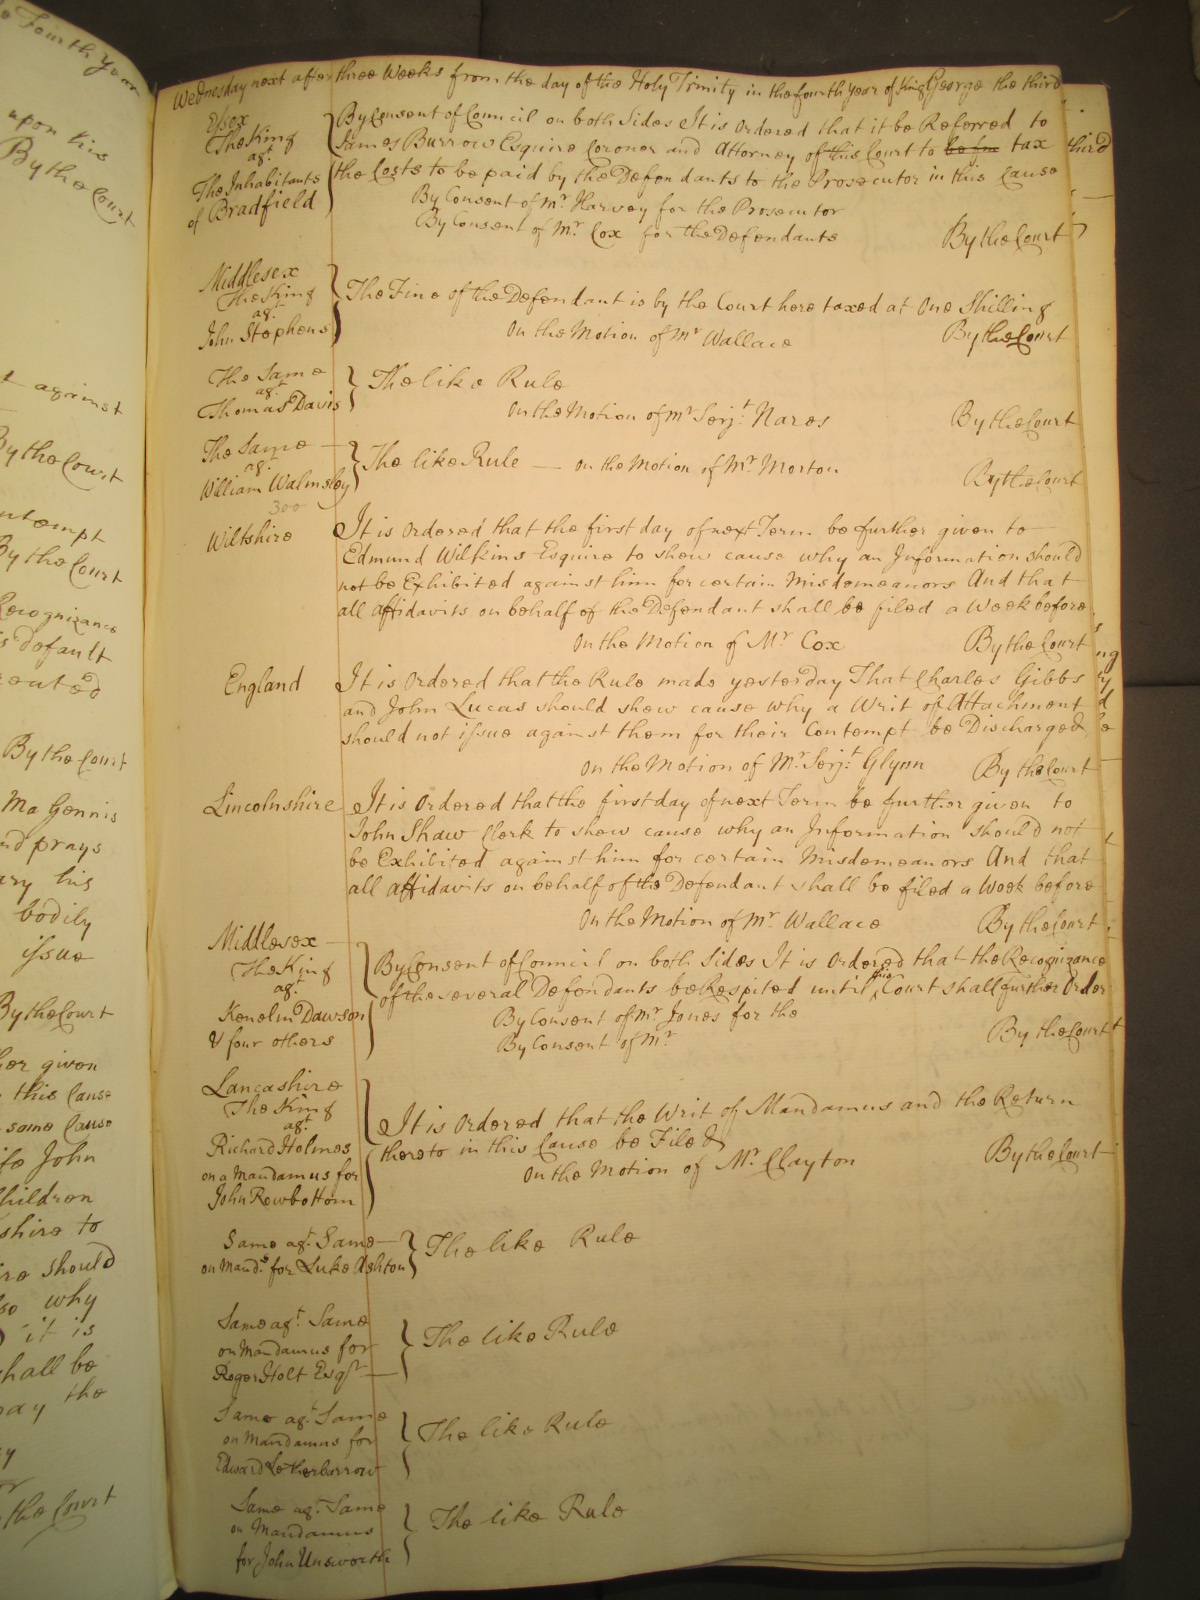 Fourth Year
upon his
By the Court
against
By the Court
By the Court
Recognizance
default
By the Court
Ma Gennis
and prays
his
bodily
issue
By the Court
given
this Cause
same Cause
John
Children
shire to
should
why
it is
shall be
the
the Court
Wednesday next after three Weeks from the day of the Holy Trinity in the fourth Year of King George the third
Essex
The King
agt.
The Inhabitants
of Bradfield
By Consent of Council on both Sides It is Ordered that it be Referred to
James Burrow Esquire Coroner and Attorney of this Court to tax
the Costs to be paid by the Defendants to the Prosecutor in this Cause
By Consent of Mr. Harvey for the Prosecutor
By Consent of Mr. Cox for the Defendants
By the Court
Middlesex
The King
agt.
John Stephens
The Fine of the Defendant is by the Court here taxed at One Shilling
On the Motion of Mr. Wallace
By the Court
The Same
agt.
Thomas Davis
The like Rule
On the Motion of Mr. Serjt. Nares
By the Court
The Same
agt.
William Walmsley
The like Rule — On the Motion of Mr. Morton
By the Court
300
Wiltshire
It is Ordered that the first day of next Term be further given to
Edmund Wilkins Esquire to shew cause why an Information should
not be Exhibited against him for certain Misdemeanors And that
all affidavits on behalf of the Defendant shall be filed a Week before
On the Motion of Mr. Cox
By the Court
England
It is Ordered that the Rule made yesterday That Charles Gibbs
and John Lucas should shew cause why a Writ of Attachment
should not issue against them for their Contempt be Discharged
On the Motion of Mr. Serjt. Glynn
By the Court
Lincolnshire
It is Ordered that the first day of next Term be further given to
John Shaw Clerk to shew cause why an Information should not
be Exhibited against him for certain Misdemeanors And that
all affidavits on behalf of the Defendant shall be filed a Week before
On the Motion of Mr. Wallace
By the Court
Middlesex
The King
agt.
Kenelm Dawson
& four others
By Consent of Council on both Sides It is Ordered that the Recognizance
of the several Defendants be Respited until this Court shall further Order
By Consent of Mr. Jones for the
By Consent of Mr.
By the Court
Lancashire
The King
agt.
Richard Holmes
on a Mandamus for
John Rowbottom
It is Ordered that the Writ of Mandamus and the Return
thereto in this Cause be Filed
On the Motion of Mr. Clayton
By the Court
Same agt. Same
on Mands. for Luke Ashton
The like Rule
Same agt. Same
on Mandamus for
Roger Holt Esqr.
The like Rule
Same agt. Same
on Mandamus for
Edward Letherbarrow
The like Rule
Same agt. Same
on Mandamus
for John Unsworth
The like Rule